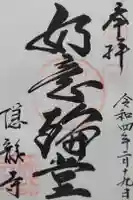 奉拝
令和四年一月十九日
如意輪堂
隠龍寺